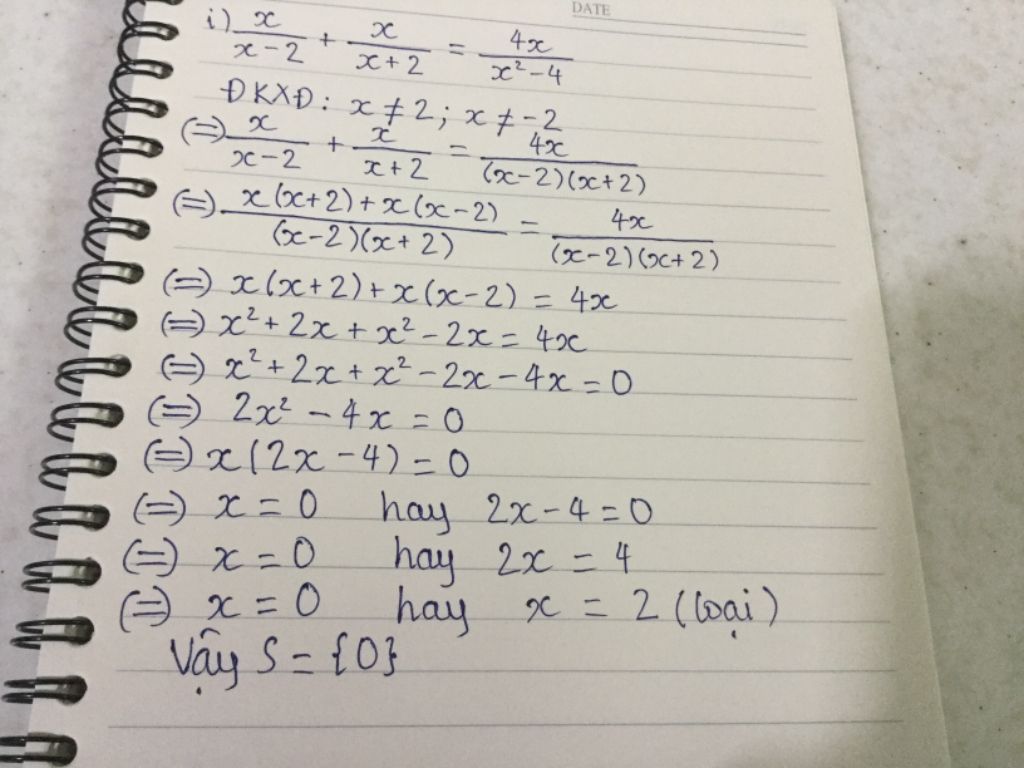 DATE
i) x/(x-2) + x/(x+2) = 4x/(x²-4)
ĐKXĐ: x ≠ 2; x ≠ -2
(=) x/(x-2) + x/(x+2) = 4x/((x-2)(x+2))
(=) (x(x+2)+x(x-2))/((x-2)(x+2)) = 4x/((x-2)(x+2))
(=) x(x+2)+x(x-2) = 4x
(=) x²+2x+x²-2x = 4x
(=) x²+2x+x²-2x-4x = 0
(=) 2x²-4x = 0
(=) x(2x-4) = 0
(=) x = 0 hay 2x-4 = 0
(=) x = 0 hay 2x = 4
(=) x = 0 hay x = 2 (loại)
Vậy S = {0}